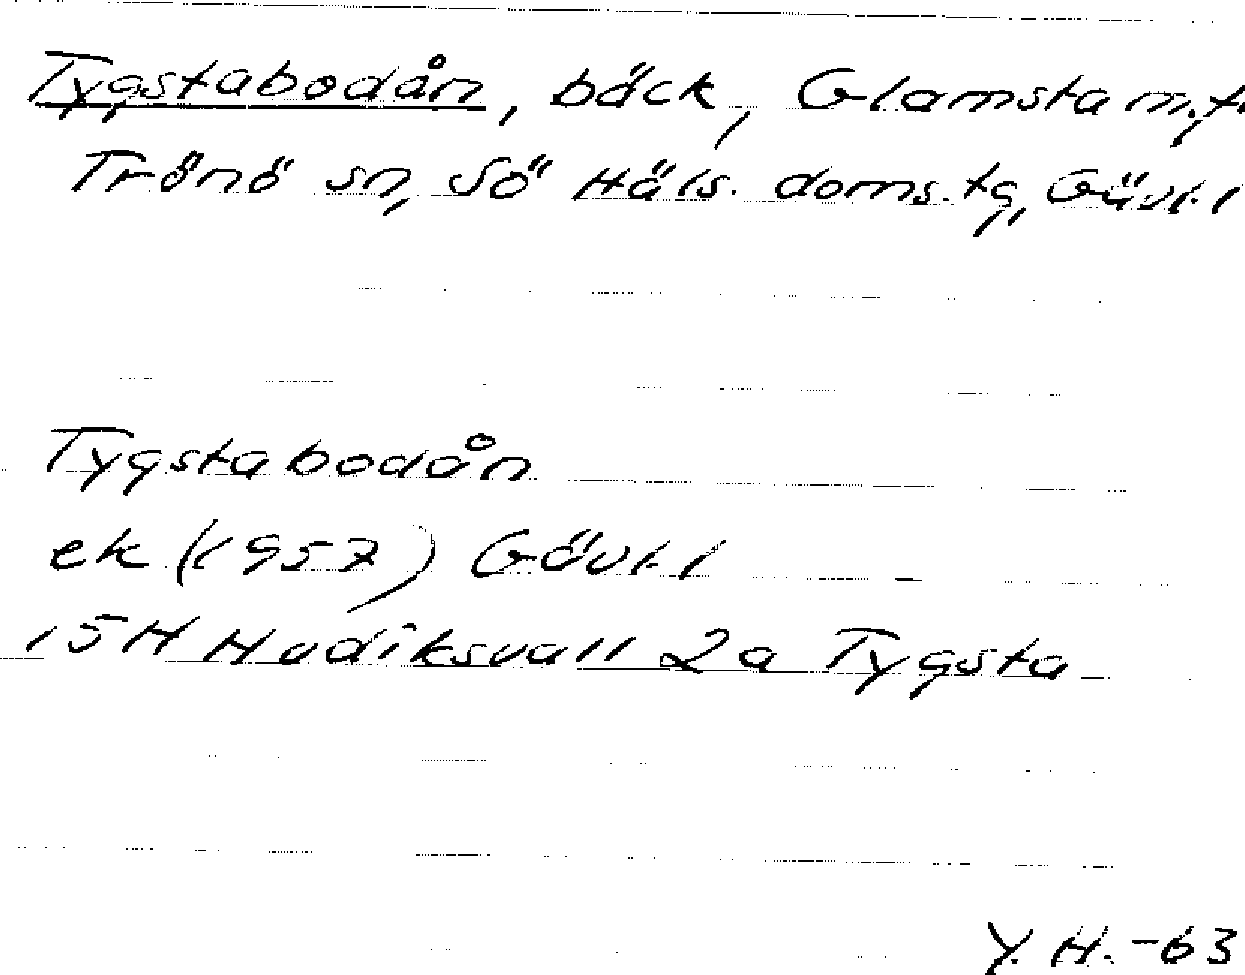 Tygstabodån, bäck, Glamsta m.fl.
Trönö sn, Sö Häls. doms.tg, Gävl.l
Tygstabodån
ek (1957) Gävl.l
15H Hudiksvall 2a Tygsta
Y.H.-63